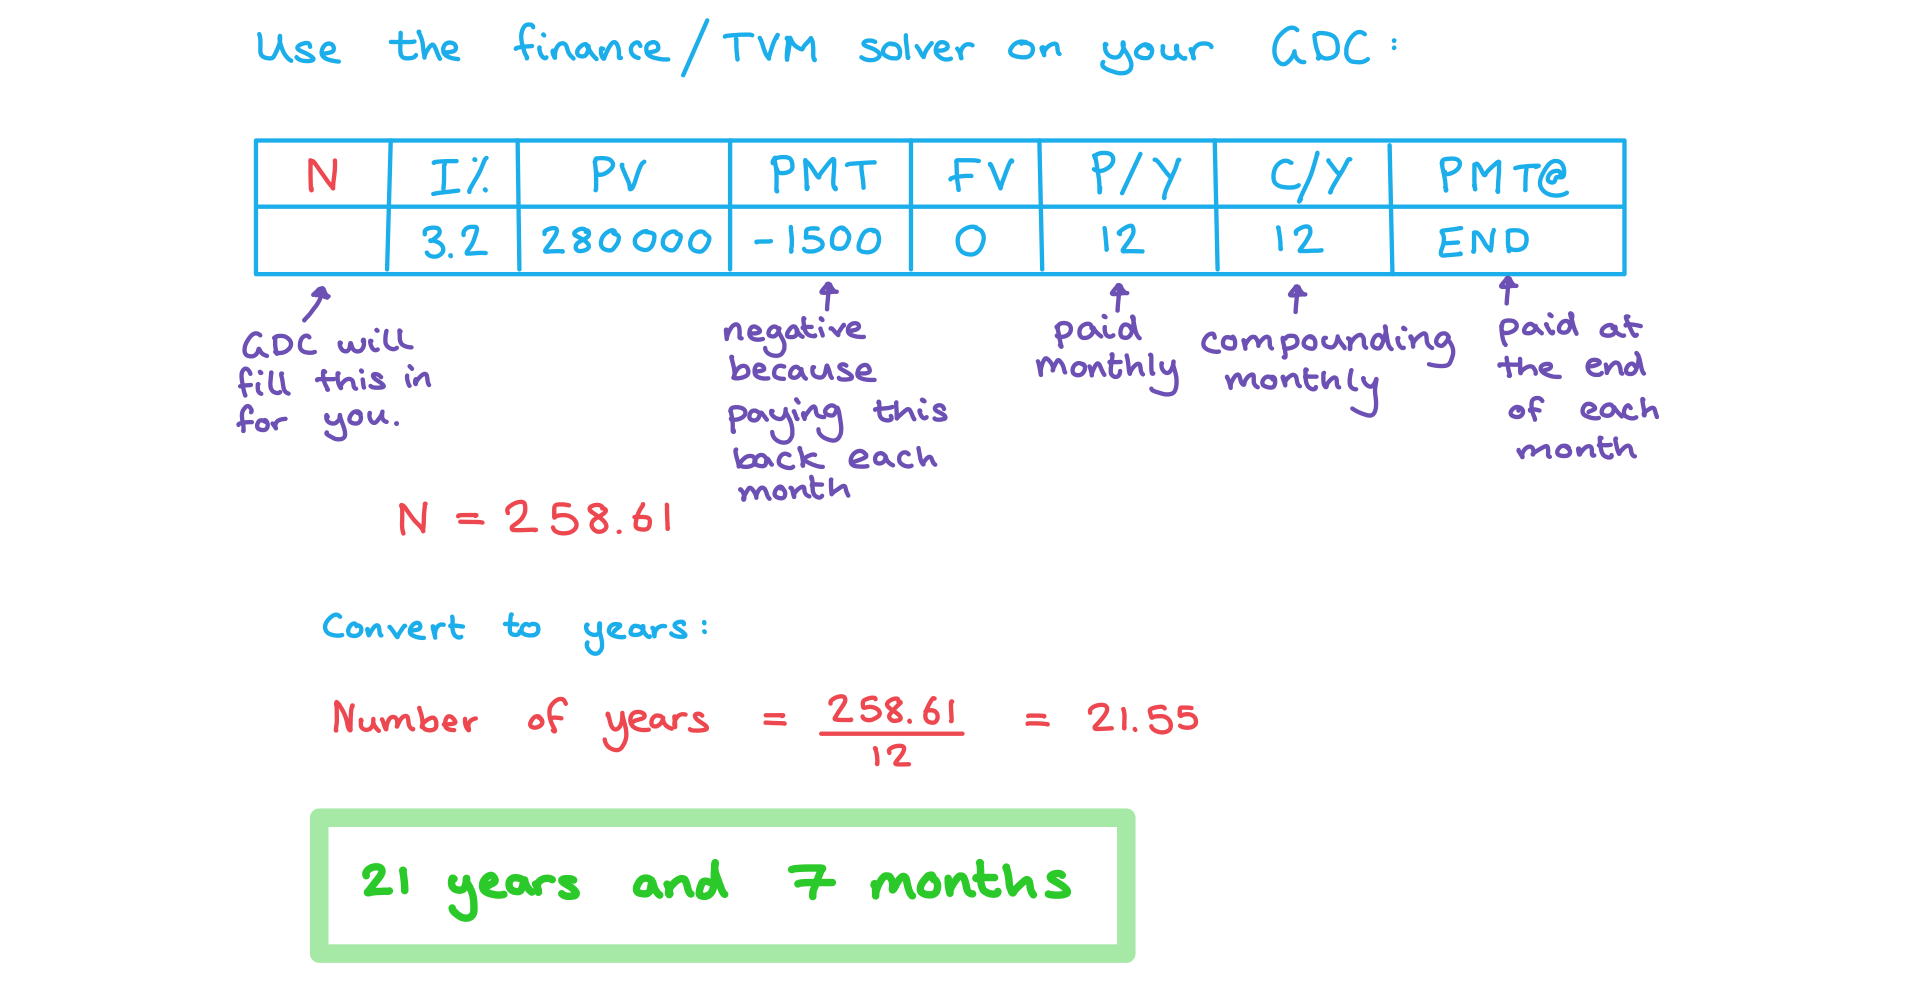 Use the finance/TVM solver on your GDC:
N I% PV PMT FV P/Y C/Y PMT@
3.2 280000 -1500 0 12 12 END
GDC will
fill this in
for you.
negative
because
paying this
back each
month
paid
monthly
compounding
monthly
paid at
the end
of each
month
N = 258.61
Convert to years:
Number of years = 258.61/12 = 21.55
21 years and 7 months